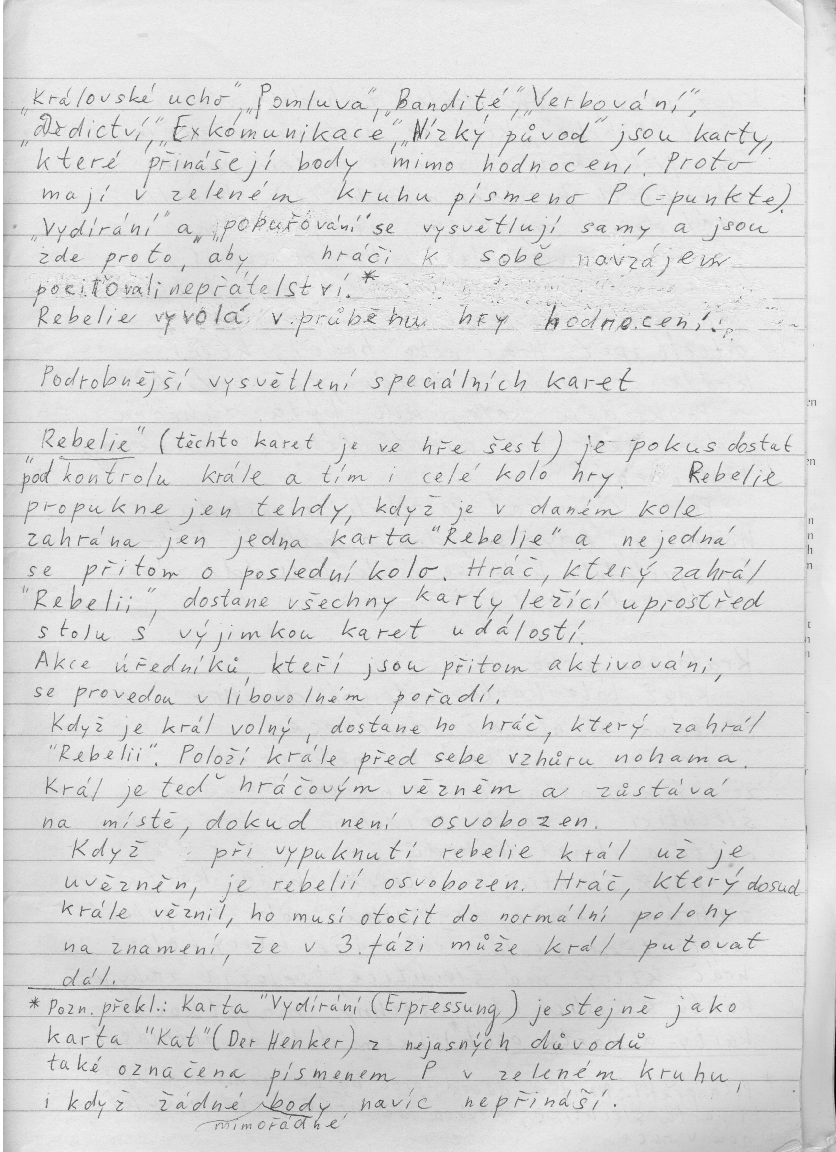 „Královské ucho", „Pomluva", „Bandité", „Verbování",
„Dědictví", „Exkomunikace", „Nízký původ" jsou karty,
které přinášejí body mimo hodnocení. Proto
mají v zeleném kruhu písmeno P (=punkte).
„Vydírání" a „pobuřování" se vysvětlují samy a jsou
zde proto, aby hráči k sobě navzájem
pociťovali nepřátelství.*
Rebelie vyvolá v průběhu hry hodnocení.
Podrobnější vysvětlení speciálních karet
"Rebelie" (těchto karet je ve hře šest) je pokus dostat
pod kontrolu krále a tím i celé kolo hry. Rebelie
propukne jen tehdy, když je v daném kole
zahrána jen jedna karta "Rebelie" a nejedná
se přitom o poslední kolo. Hráč, který zahrál
"Rebelii", dostane všechny karty ležící uprostřed
stolu s výjimkou karet událostí.
Akce úředníků, kteří jsou přitom aktivováni,
se provedou v libovolném pořadí.
Když je král volný, dostane ho hráč, který zahrál
"Rebelii". Položí krále před sebe vzhůru nohama.
Král je teď hráčovým vězněm a zůstává
na místě, dokud není osvobozen.
Když při vypuknutí rebelie král už je
uvězněn, je rebelií osvobozen. Hráč, který dosud
krále věznil, ho musí otočit do normální polohy
na znamení, že v 3. fázi může král putovat
dál.
* Pozn. překl.: Karta "Vydírání (Erpressung) je stejně jako
karta "Kat" (Der Henker) z nejasných důvodů
také označena písmenem P v zeleném kruhu,
i když žádné body navíc nepřináší.
mimořádné